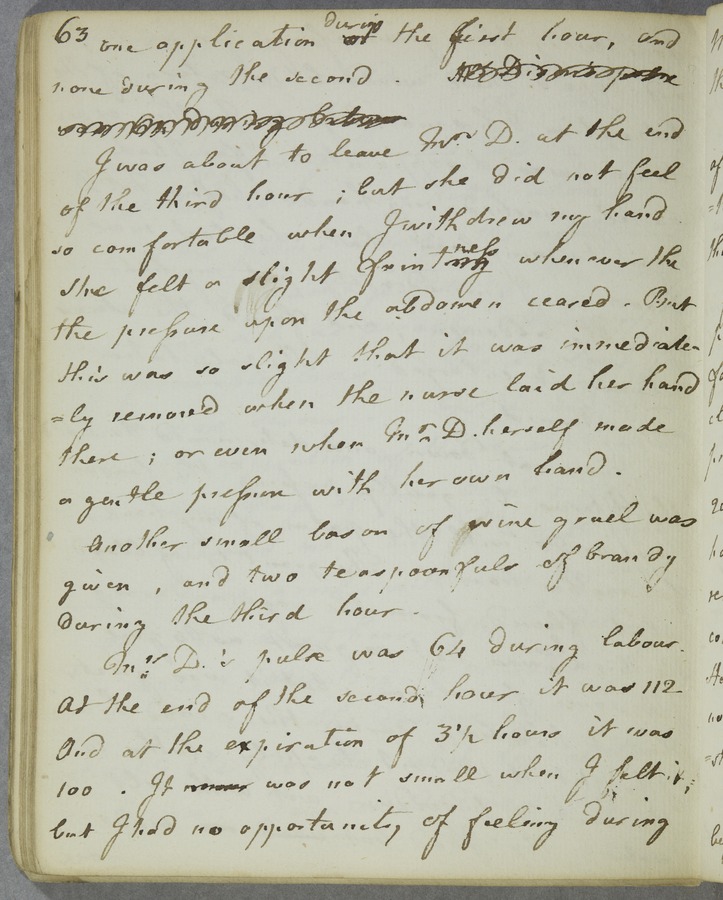 63 one application during the first hour, and
none during the second.
I was about to leave Mrs D. at the end
of the third hour; but she did not feel
so comfortable when I withdrew my hand
she felt a slight faintness whenever the
the pressure upon the abdomen ceased. But
this was so slight that it was immediate-
=ly removed when the nurse laid her hand
there; or even when Mrs D. herself made
a gentle pressure with her own hand.
Another small bason of wine gruel was
given, and two teaspoonfuls of brandy
during the third hour.
Mrs D.'s pulse was 64 during labour.
At the end of the second hour it was 112
And at the expiration of 3 1/2 hours it was
100. It was not small when I felt it;
but I had no opportunity of feeling during